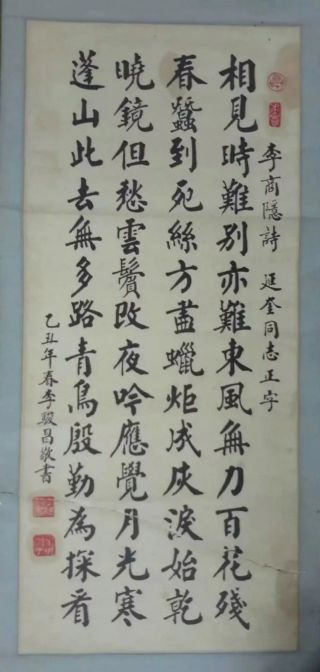 李商隱詩 延奎同志正字
相見時難別亦難東風無力百花殘
春蠶到死絲方盡蠟炬成灰淚始乾
曉鏡但愁雲鬢改夜吟應覺月光寒
蓬山此去無多路青鳥殷勤為探看
乙丑年春李駿昌敬書